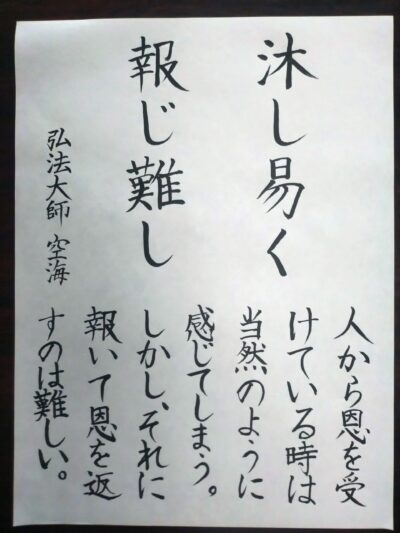 沐し易く
報じ難し
弘法大師 空海
人から恩を受
けている時は
当然のように
感じてしまう。
しかし、それに
報いて恩を返
すのは難しい。